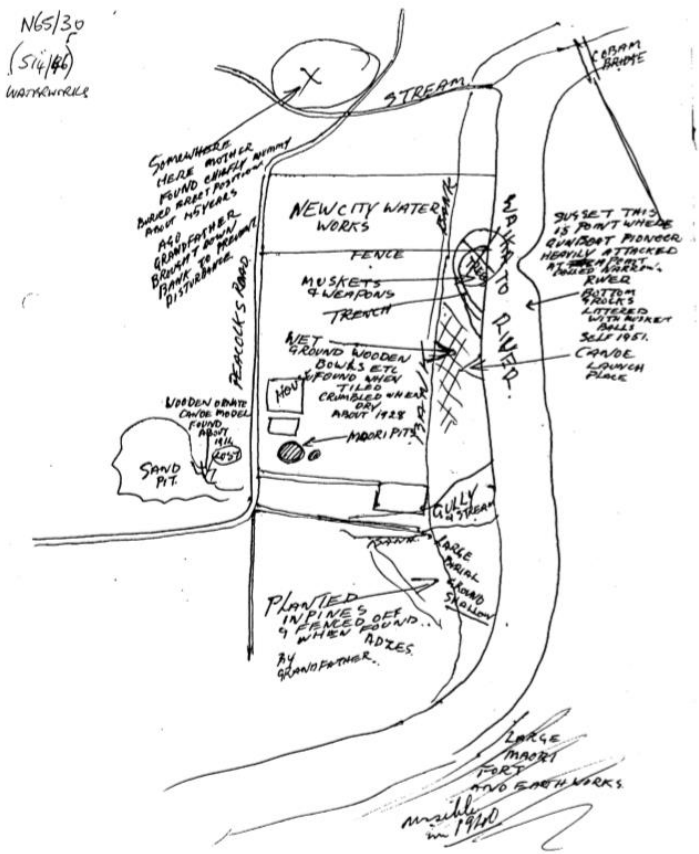 N65/30
(S14/46)
WATERWORKS
COBAM
BRIDGE
STREAM
SOMEWHERE
HERE MOTHER
FOUND CHIEFLY MUMMY
BURIED ERECT POSITION
ABOUT 45 YEARS
AGO
GRANDFATHER
BROUGHT DOWN
BANK TO PREVENT
DISTURBANCE
NEW CITY WATER
WORKS
BANK
WAIKATO RIVER
FENCE
MUSKETS
& WEAPONS
TRENCH
SUGGEST THIS
IS POINT WHERE
GUNBOAT PIONEER
HEAVILY ATTACKED
POINT
NARROW.
RIVER
BOTTOM
& ROCKS
LITTERED
WITH MUSKET
BALLS
SELF 1951.
CANOE
LAUNCH
PLACE
PEACOCKS ROAD
WET
GROUND WOODEN
BOWLS ETC
FOUND WHEN
TILED
CRUMBLED WHEN
DRY
ABOUT 1928
HOUSE
BANK
MAORI PITS
WOODEN ORNATE
CANOE MODEL
FOUND
ABOUT
1914
LOST
SAND
PIT.
GULLY
& STREAM
BANK
LARGE
BURIAL
GROUND
SHALLOW
PLANTED
IN PINES
& FENCED OFF
WHEN FOUND..
ADZES.
BY
GRANDFATHER..
LARGE
MAORI
FORT
AND EARTH WORKS
visible
in 1940.